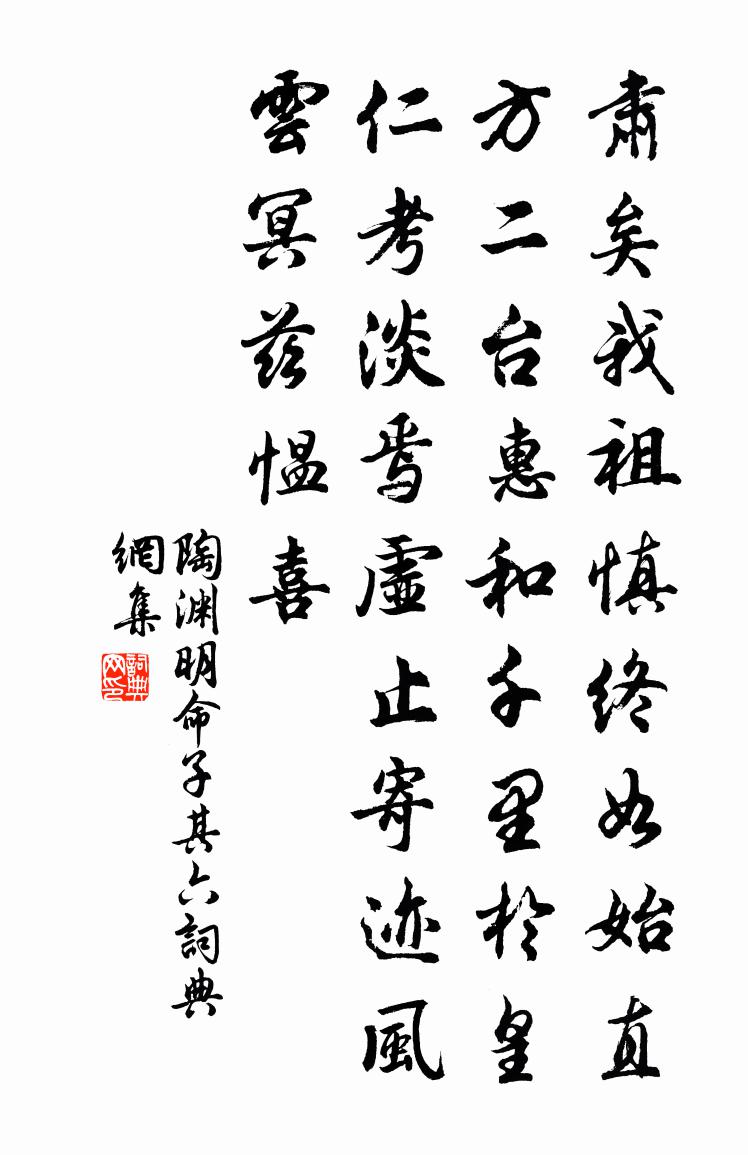 肅矣我祖慎終如始直
方二台惠和千里於皇
仁考淡焉虛止寄迹風
雲冥茲愠喜
陶渊明命子其六詞典
網集
詞典
网印